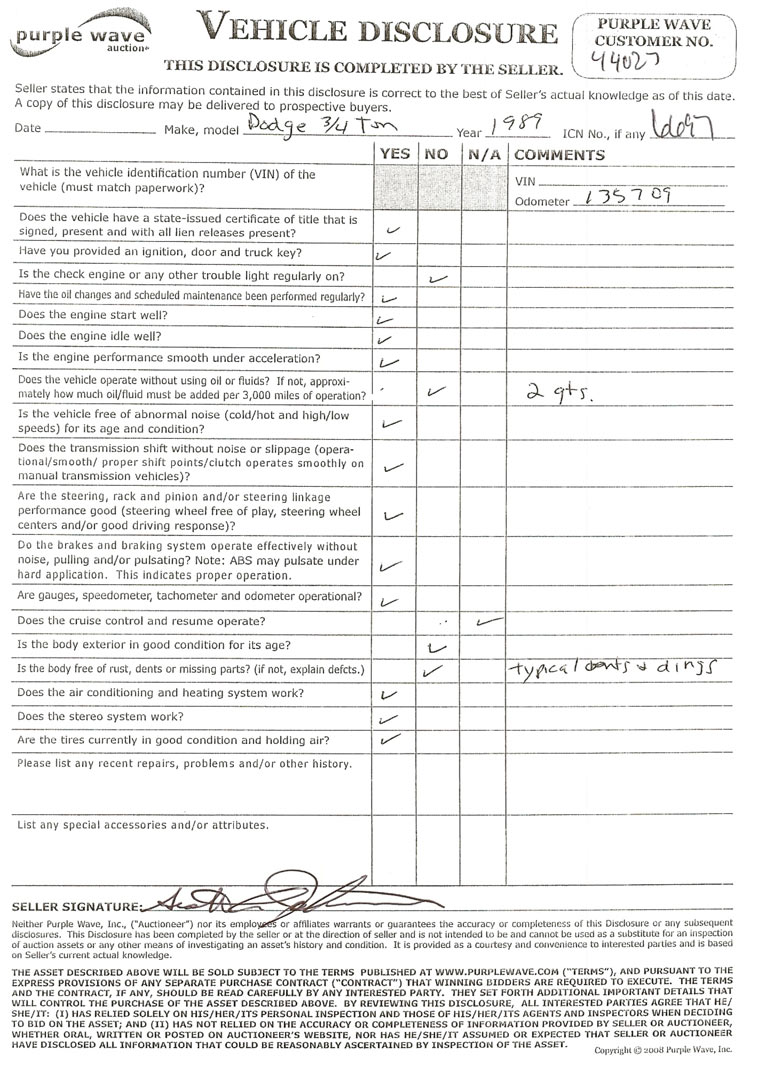 purple wave
auction®
VEHICLE DISCLOSURE
THIS DISCLOSURE IS COMPLETED BY THE SELLER.
PURPLE WAVE
CUSTOMER NO.
44027
Seller states that the information contained in this disclosure is correct to the best of Seller's actual knowledge as of this date.
A copy of this disclosure may be delivered to prospective buyers.
Date Make, model Dodge 3/4 Ton Year 1989 ICN No., if any
YES NO N/A COMMENTS
What is the vehicle identification number (VIN) of the
vehicle (must match paperwork)?
VIN
Odometer 135709
Does the vehicle have a state-issued certificate of title that is
signed, present and with all lien releases present? ✓
Have you provided an ignition, door and truck key? ✓
Is the check engine or any other trouble light regularly on? ✓
Have the oil changes and scheduled maintenance been performed regularly? ✓
Does the engine start well? ✓
Does the engine idle well? ✓
Is the engine performance smooth under acceleration? ✓
Does the vehicle operate without using oil or fluids? If not, approxi-
mately how much oil/fluid must be added per 3,000 miles of operation? ✓ 2 qts.
Is the vehicle free of abnormal noise (cold/hot and high/low
speeds) for its age and condition? ✓
Does the transmission shift without noise or slippage (opera-
tional/smooth/ proper shift points/clutch operates smoothly on
manual transmission vehicles)? ✓
Are the steering, rack and pinion and/or steering linkage
performance good (steering wheel free of play, steering wheel
centers and/or good driving response)? ✓
Do the brakes and braking system operate effectively without
noise, pulling and/or pulsating? Note: ABS may pulsate under
hard application. This indicates proper operation. ✓
Are gauges, speedometer, tachometer and odometer operational? ✓
Does the cruise control and resume operate? ✓
Is the body exterior in good condition for its age? ✓
Is the body free of rust, dents or missing parts? (if not, explain defcts.) ✓ typical dents & dings
Does the air conditioning and heating system work? ✓
Does the stereo system work? ✓
Are the tires currently in good condition and holding air? ✓
Please list any recent repairs, problems and/or other history.
List any special accessories and/or attributes.
SELLER SIGNATURE:
Neither Purple Wave, Inc., ("Auctioneer") nor its employees or affiliates warrants or guarantees the accuracy or completeness of this Disclosure or any subsequent
disclosures. This Disclosure has been completed by the seller or at the direction of seller and is not intended to be and cannot be used as a substitute for an inspection
of auction assets or any other means of investigating an asset's history and condition. It is provided as a courtesy and convenience to interested parties and is based
on Seller's current actual knowledge.
THE ASSET DESCRIBED ABOVE WILL BE SOLD SUBJECT TO THE TERMS PUBLISHED AT WWW.PURPLEWAVE.COM ("TERMS"), AND PURSUANT TO THE
EXPRESS PROVISIONS OF ANY SEPARATE PURCHASE CONTRACT ("CONTRACT") THAT WINNING BIDDERS ARE REQUIRED TO EXECUTE. THE TERMS
AND THE CONTRACT, IF ANY, SHOULD BE READ CAREFULLY BY ANY INTERESTED PARTY. THEY SET FORTH ADDITIONAL IMPORTANT DETAILS THAT
WILL CONTROL THE PURCHASE OF THE ASSET DESCRIBED ABOVE. BY REVIEWING THIS DISCLOSURE, ALL INTERESTED PARTIES AGREE THAT HE/
SHE/IT: (I) HAS RELIED SOLELY ON HIS/HER/ITS PERSONAL INSPECTION AND THOSE OF HIS/HER/ITS AGENTS AND INSPECTORS WHEN DECIDING
TO BID ON THE ASSET; AND (II) HAS NOT RELIED ON THE ACCURACY OR COMPLETENESS OF INFORMATION PROVIDED BY SELLER OR AUCTIONEER,
WHETHER ORAL, WRITTEN OR POSTED ON AUCTIONEER'S WEBSITE, NOR HAS HE/SHE/IT ASSUMED OR EXPECTED THAT SELLER OR AUCTIONEER
HAVE DISCLOSED ALL INFORMATION THAT COULD BE REASONABLY ASCERTAINED BY INSPECTION OF THE ASSET.
Copyright © 2008 Purple Wave, Inc.